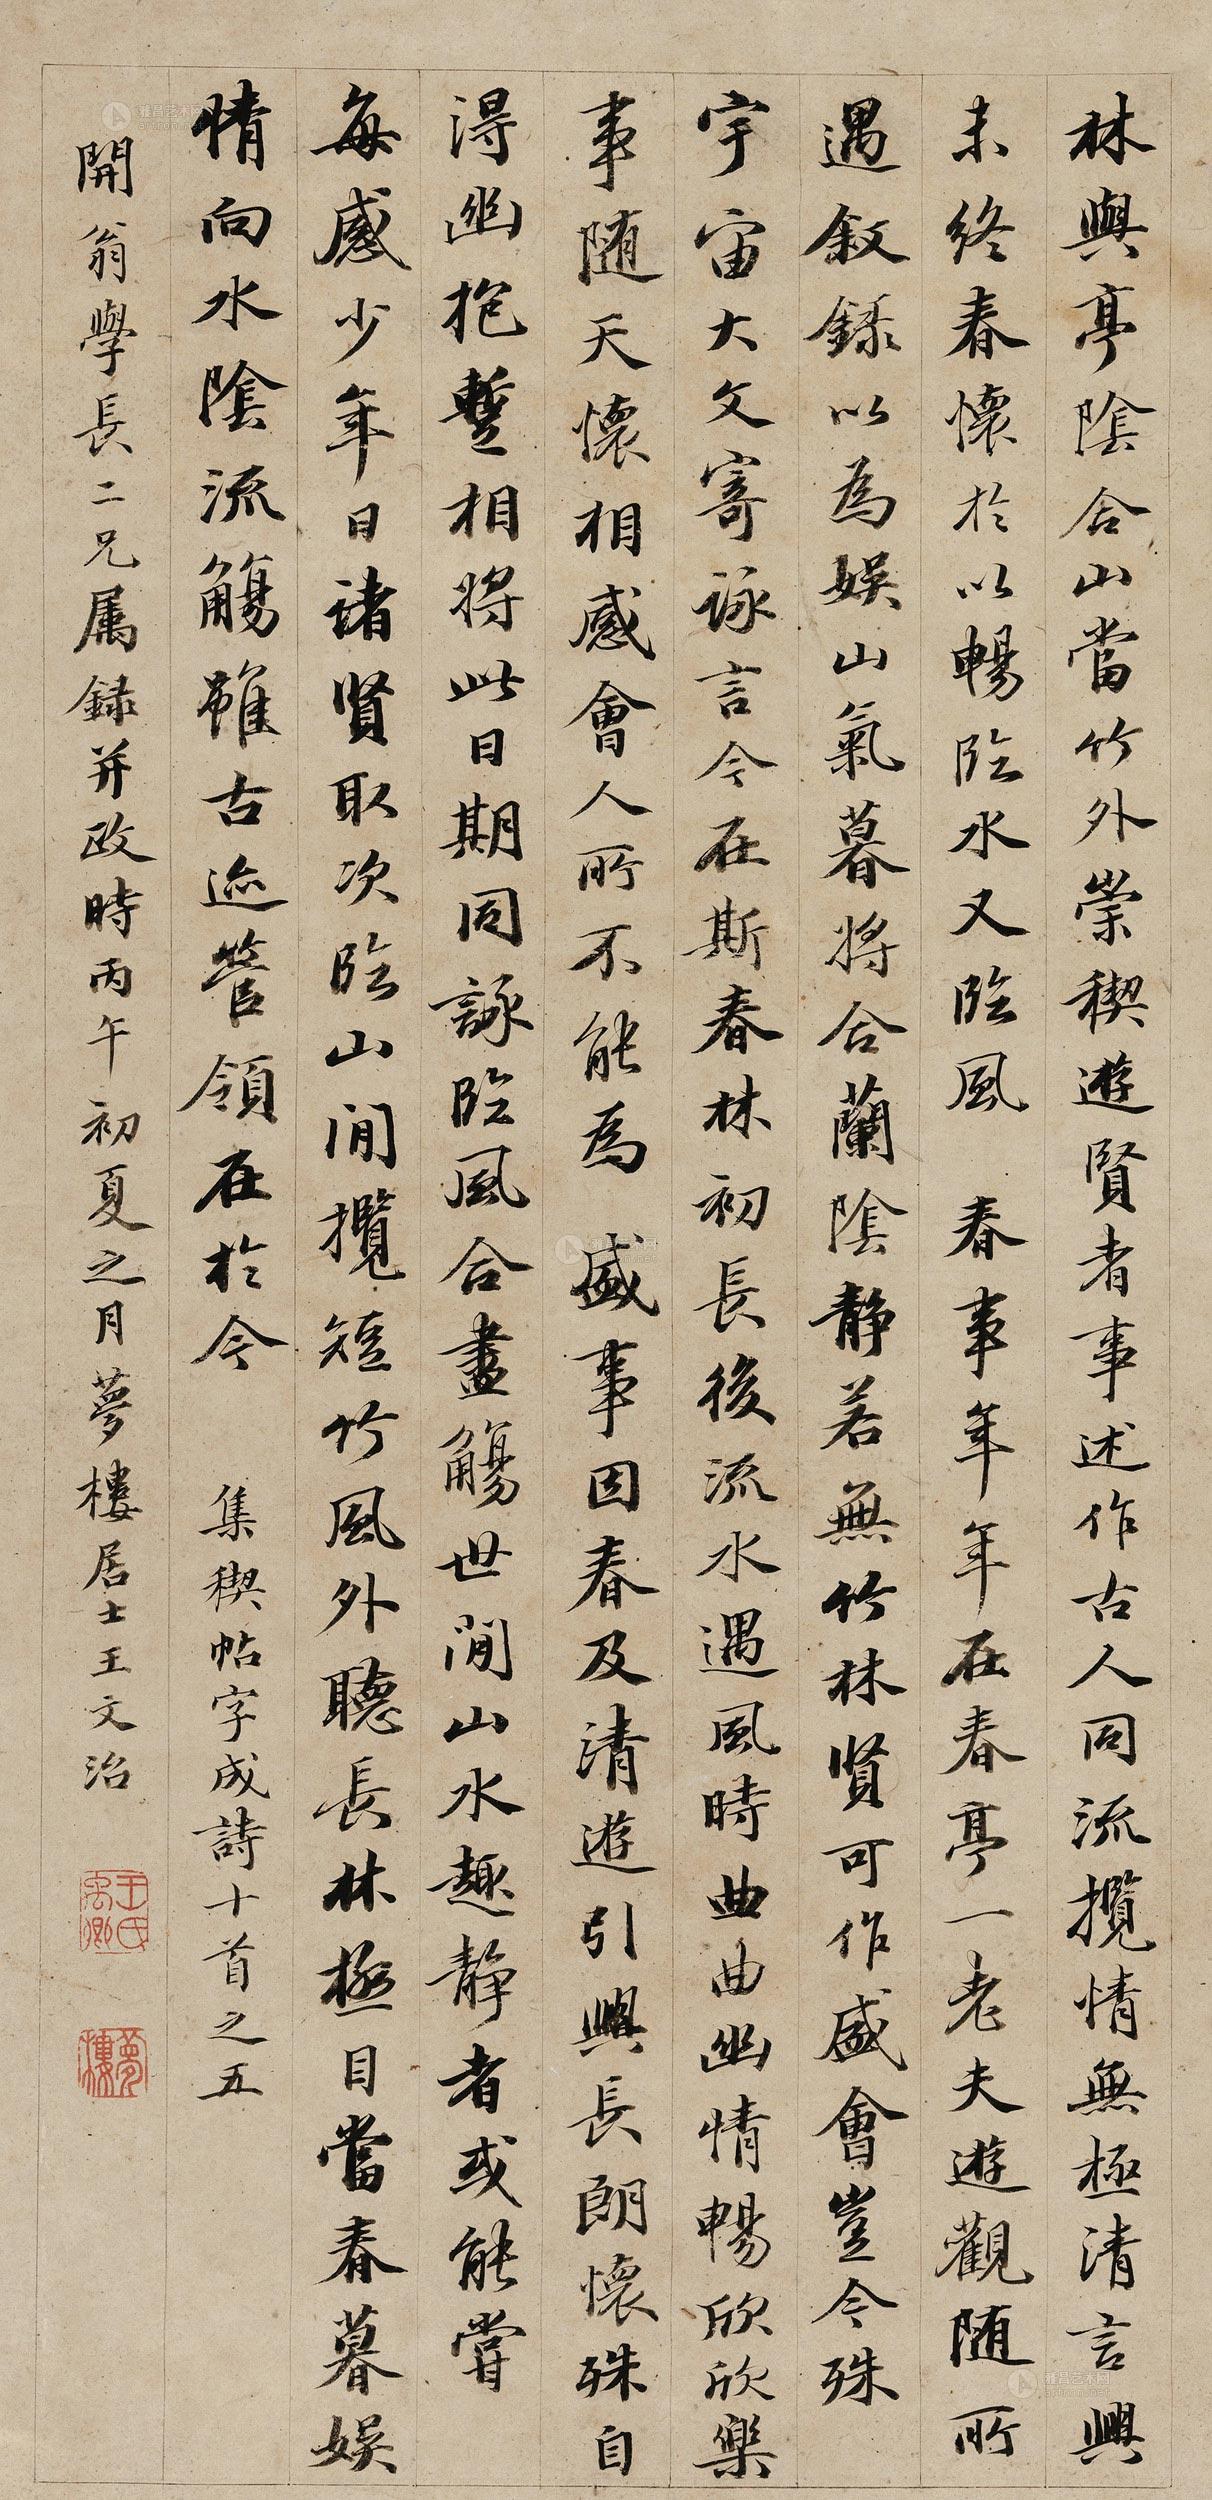 林與亭陰合山當竹外崇稧遊賢者事述作古人同流攬情無極清言興
未終春懷於以暢臨水又臨風　春事年年在春亭一老夫遊觀随所
遇敘錄以為娱山氣暮將合蘭陰靜若無竹林賢可作盛會豈今殊
宇宙大文寄詠言今在斯春林初長後流水遇風時曲曲幽情暢欣欣樂
事随天懷相感會人所不能為　盛事因春及清遊引興長朗懷殊自
得幽抱暫相將此日期同詠臨風合盡觴世間山水趣靜者或能嘗
每感少年日諸賢取次臨山間攬短竹風外聽長林極目當春暮娱
情向水陰流觴雖古迹管領在於今　集稧帖字成詩十首之五
開翁學長二兄属録并政時丙午初夏之月夢樓居士王文治
王氏禹卿
夢樓